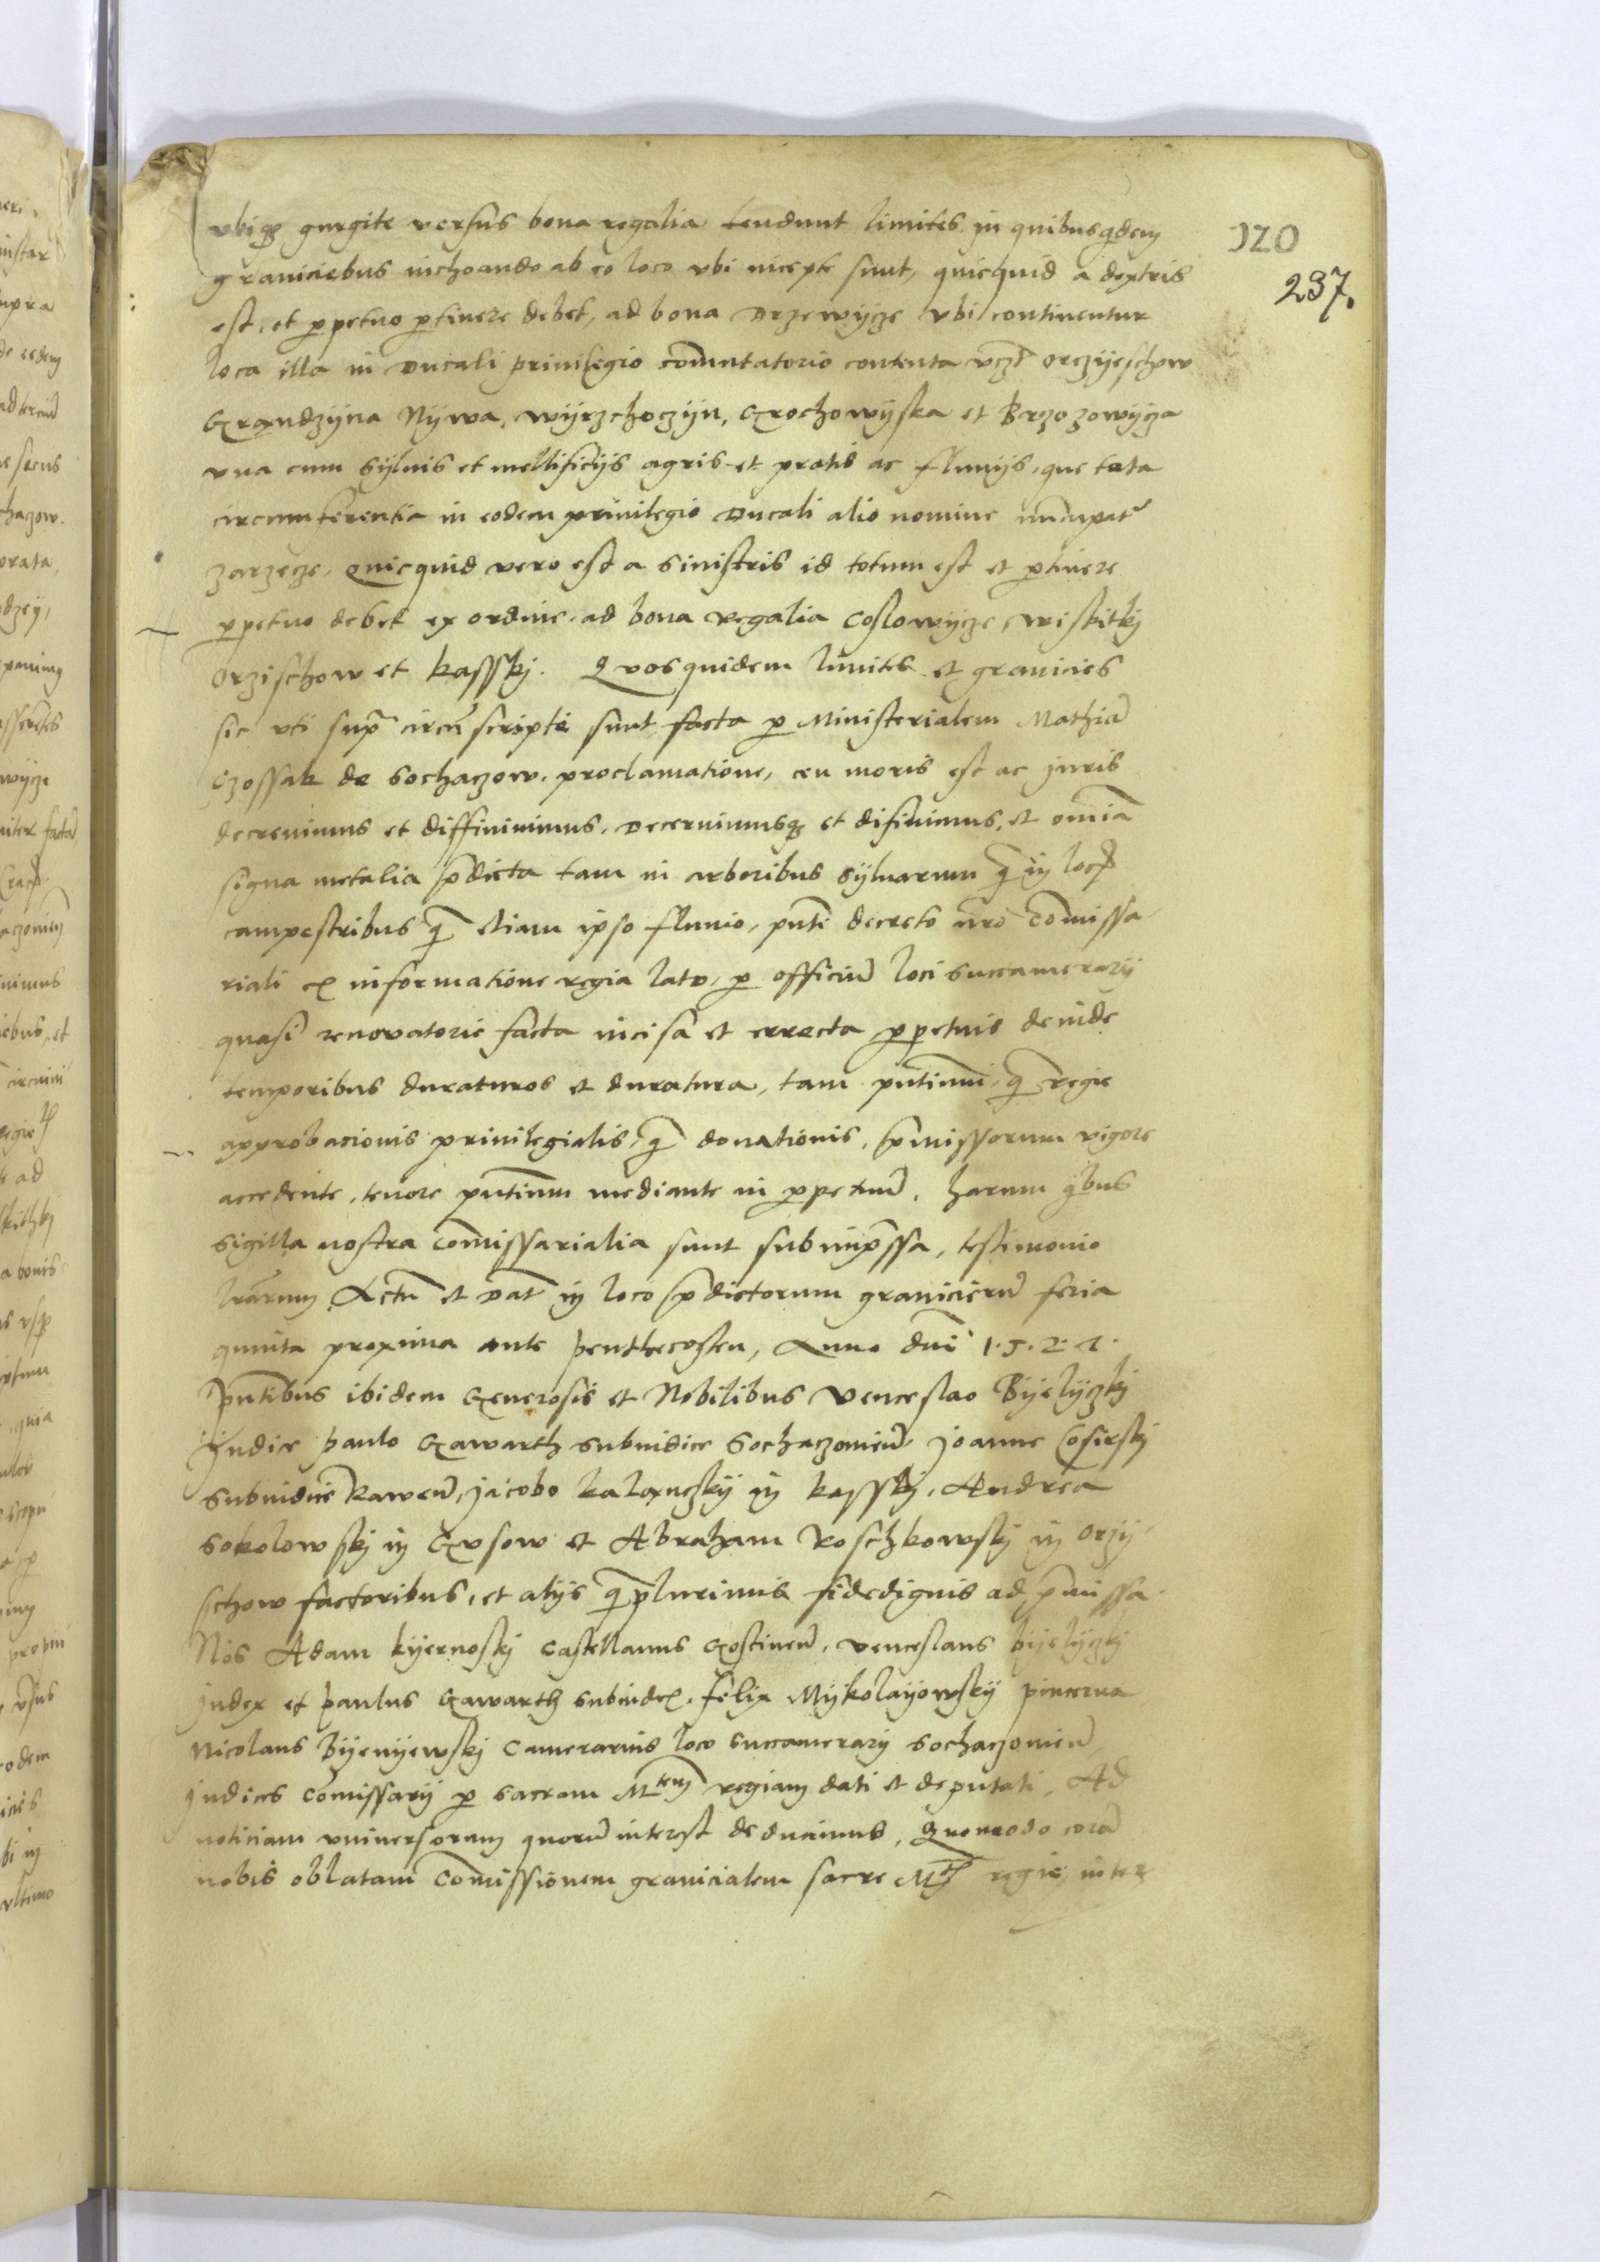 vbiqȝ gurgite versus bona regalia tendunt limites in quibusqdem
graniciebus inchoando ab eo loco vbi incepte sunt, quicquid a dextris
est, et ꝑpetuo ꝑtinere debet, ad bona Drzewycze vbi continentur
loca illa in Ducali priuilegio com̃utatorio contenta vcz̃t orczyeschow
Grandzyna Nywa, wyrzchoczyn, Grochowyska et Brzozowycza
vna cum syluis et mellificijs agris et pratis ac fluuijs, que tota
circumferentia in eodem priuilegio Ducali alio nomine nũcupat̃
zarzecze, Quicquid vero est a sinistris id totum est et ꝑtinere
ꝑpetuo debet ex ordine ad bona Regalia Coslowycze, wiskitkj
orzischow et kasskj. Quosquidem limites et granicies
sic vti sup̃ circũscripte sunt facta ꝑ Ministerialem Mathiã
Czossak de Sochaczow, proclamatione, ceu moris est ac juris
decreuimus et diffiniuimus, Decernimusqȝ et difinimus, et om̃ia
signa metalia p̃dicta tam in arboribus syluarum q̃ in loc
campestribus q̃ etiam ipso fluuio, pñti decreto nr̃o Com̃issa
riali ex informatione regia lato, ꝑ officiũ loci succamerarij
quasi renouatorie facta incisa et errecta ꝑpetuis deinde
temporibus duraturos et duratura, tam pñtium, q̃ regie
approbacionis priuilegialis, q̃ donationis, p̃missorum vigore
accedente, tenore pñtium mediante in ꝑpetuũ, harum qbus
sigilla nostra Com̃issarialia sunt subimp̃ssa, testimonio
lr̃arum, Actũ et Dat̃ in loco p̃dictorum granicierũ feria
quinta proxima ante penthecosten, Anno dñi 1.5.2.1.
Pñtibus ibidem Generosis et Nobilibus venceslao Byelyczkj
Judice paulo Gawarth subiudice Sochaczouieñ Joanne Cosirskj
subiudice Raweñ, Jacobo kalanczky in kasskj, Andrea
Sokolowskj in Gusow et Abraham Roschkowskj in orzy
schow factoribus, et alijs q̃plurimis fidedignis ad p̃missa
Nos Adam kyernoskj Castellanus Gostineñ, venceslaus byelyczkj
Judex et paulus Gawarth subiudex, felix Mykolayowsky pincerna
Nicolaus Byenyewskj Camerarius loco succamerarij Sochaczouieñ,
Judices Com̃issarij ꝑ sacram Mtem regiam dati et deputati, Ad
noticiam vniuersorum quorũ interest deducimus, Quomodo corã
nobis oblatam Com̃issionem granicialem sacre Mtis regie, inter
320
237.